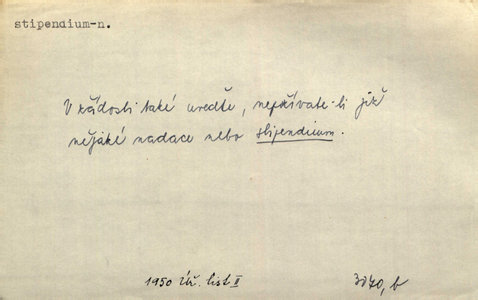 stipendium-n.
V žádosti také uveďte, nepožíváte-li již
nějaké nadace nebo stipendium.
1950 Úř. list II
3070, b